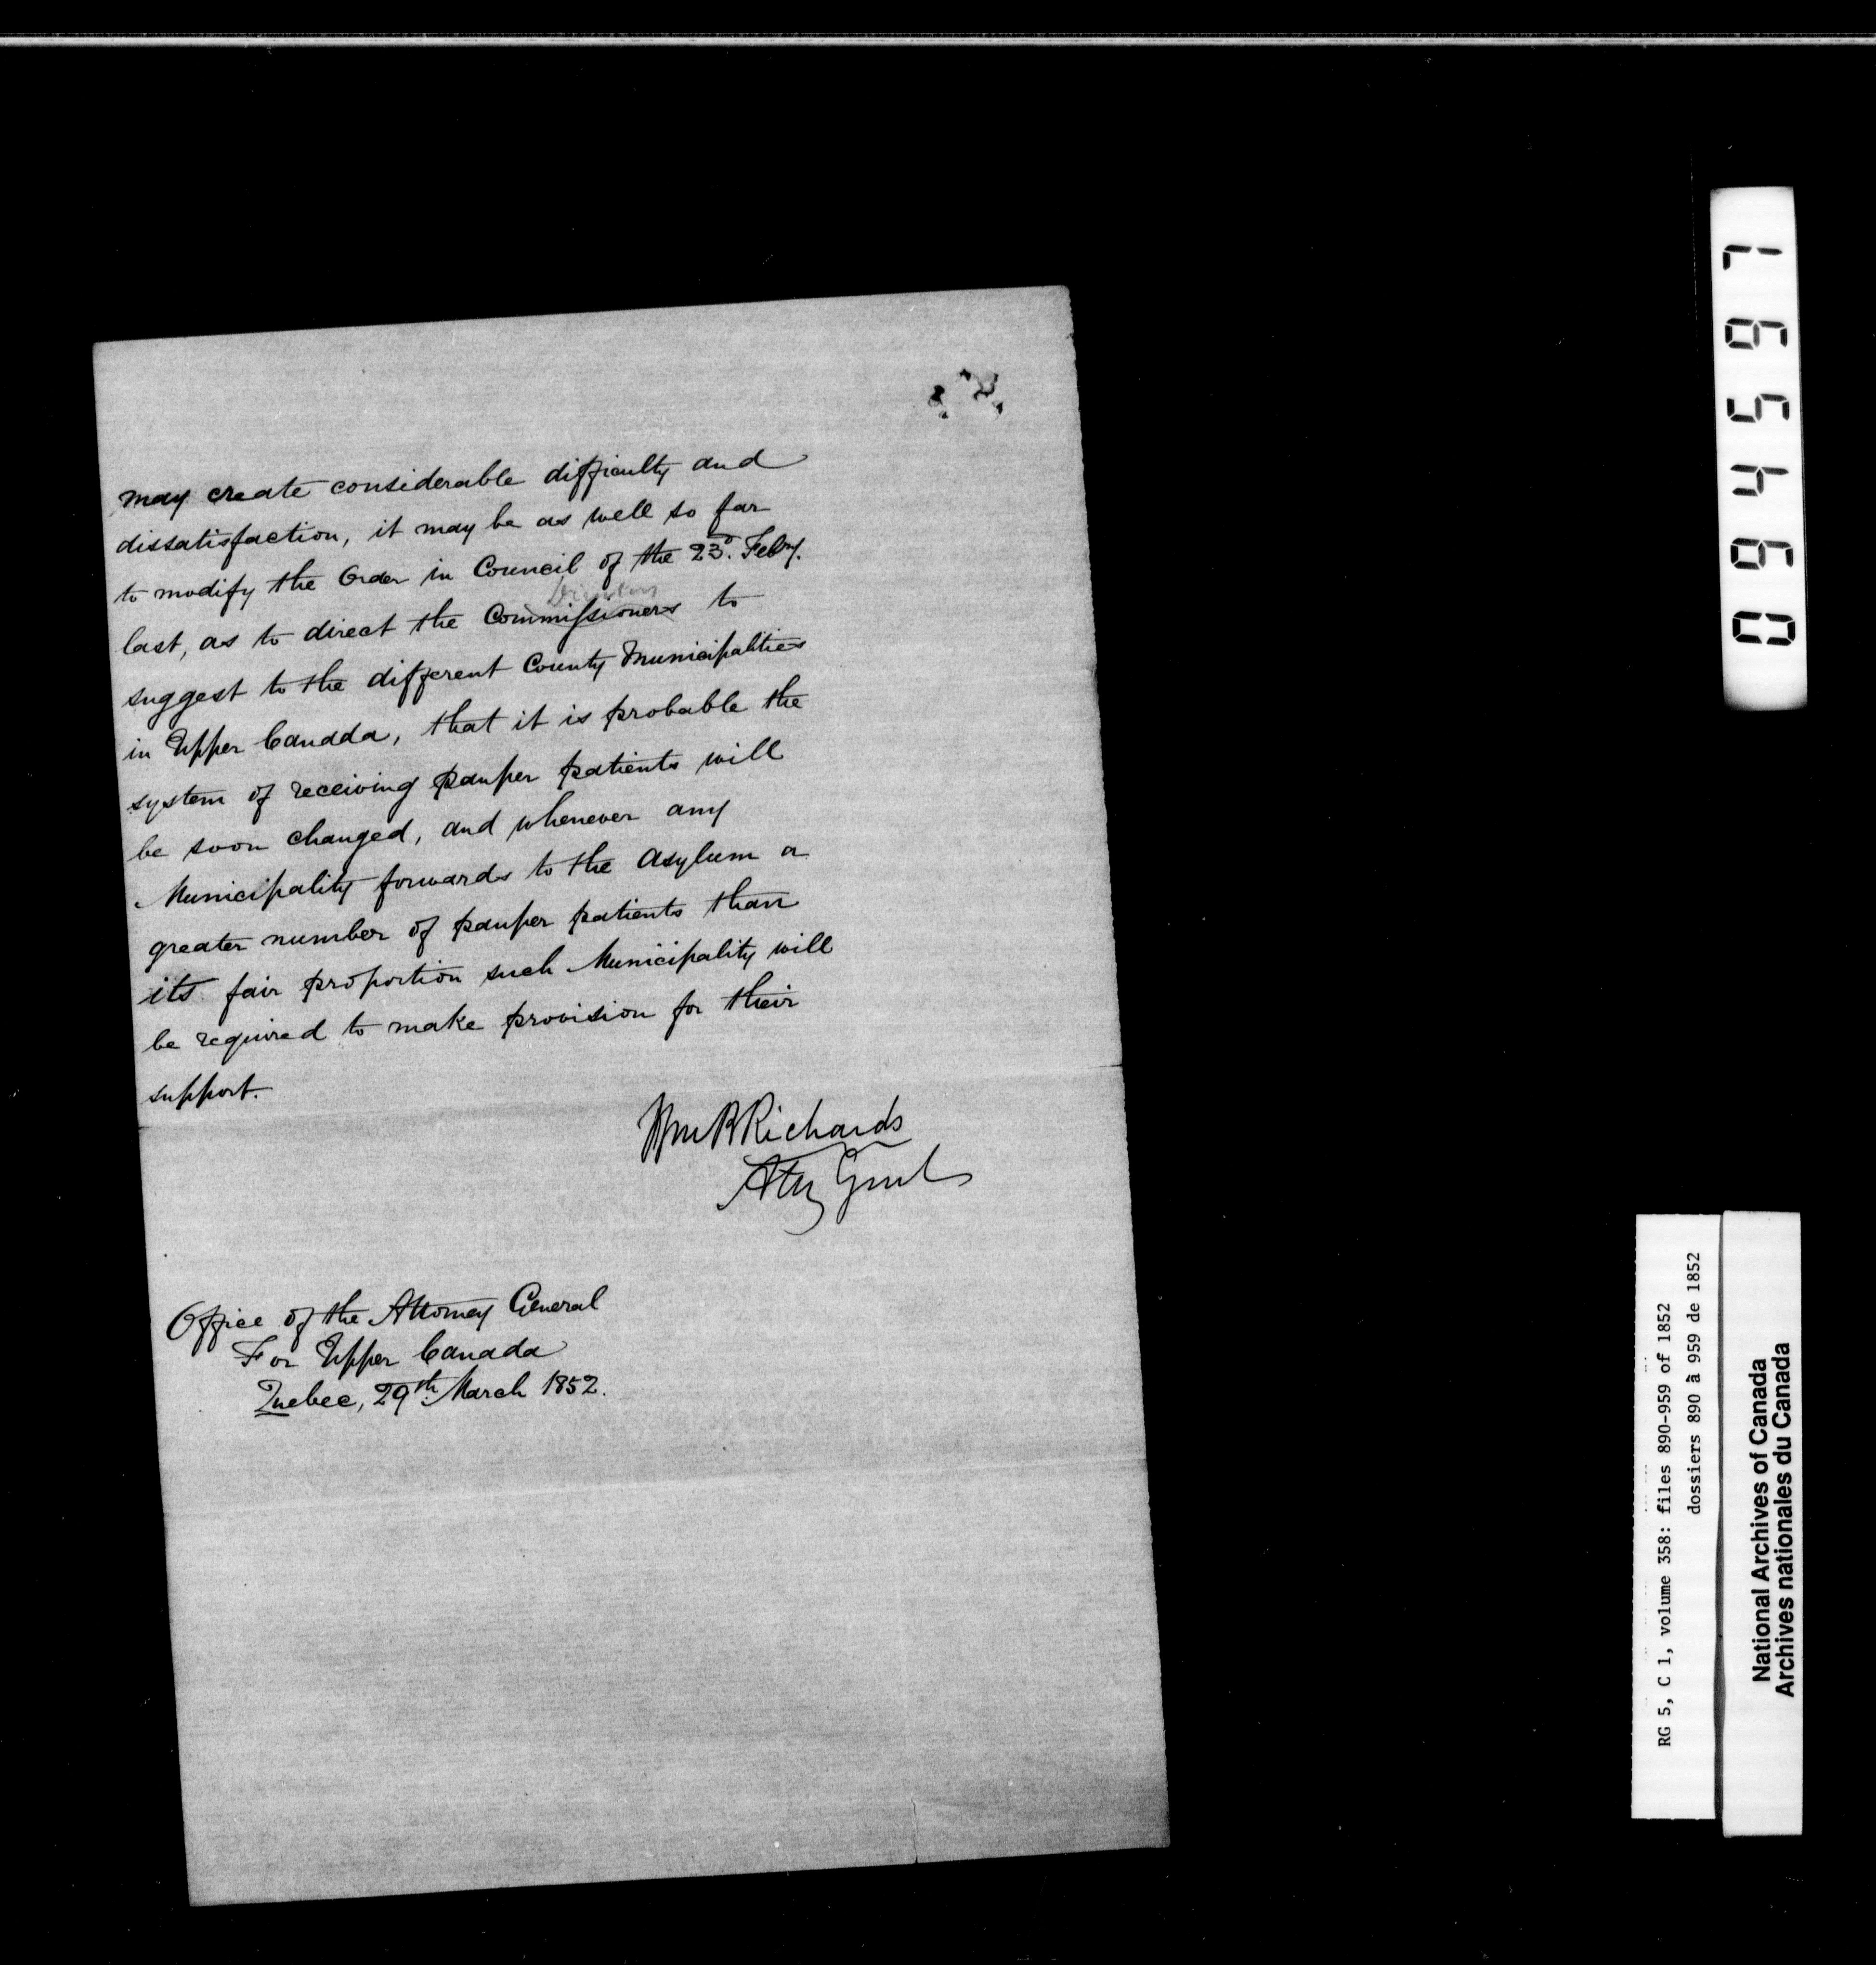 may create considerable difficulty and
dissatisfaction, it may be as well so far
to modify the Order in Council of the 23d. Febry.
Directors
last, as to direct the Commissioners to
suggest to the different County Municipalities
in Upper Canada, that it is probable the
system of receiving pauper patients will
be soon changed, and whenever any
Municipality forwards to the Asylum a
greater number of pauper patients than
its fair proportion such Municipality will
be required to make provision for their
support.
Wm B Richards
Atty Genl
Office of the Attorney General
For Upper Canada
Quebec, 29th March 1852.
094597
RG 5, C 1, volume 358: files 890-959 of 1852
dossiers 890 à 959 de 1852
National Archives of Canada
Archives nationales du Canada